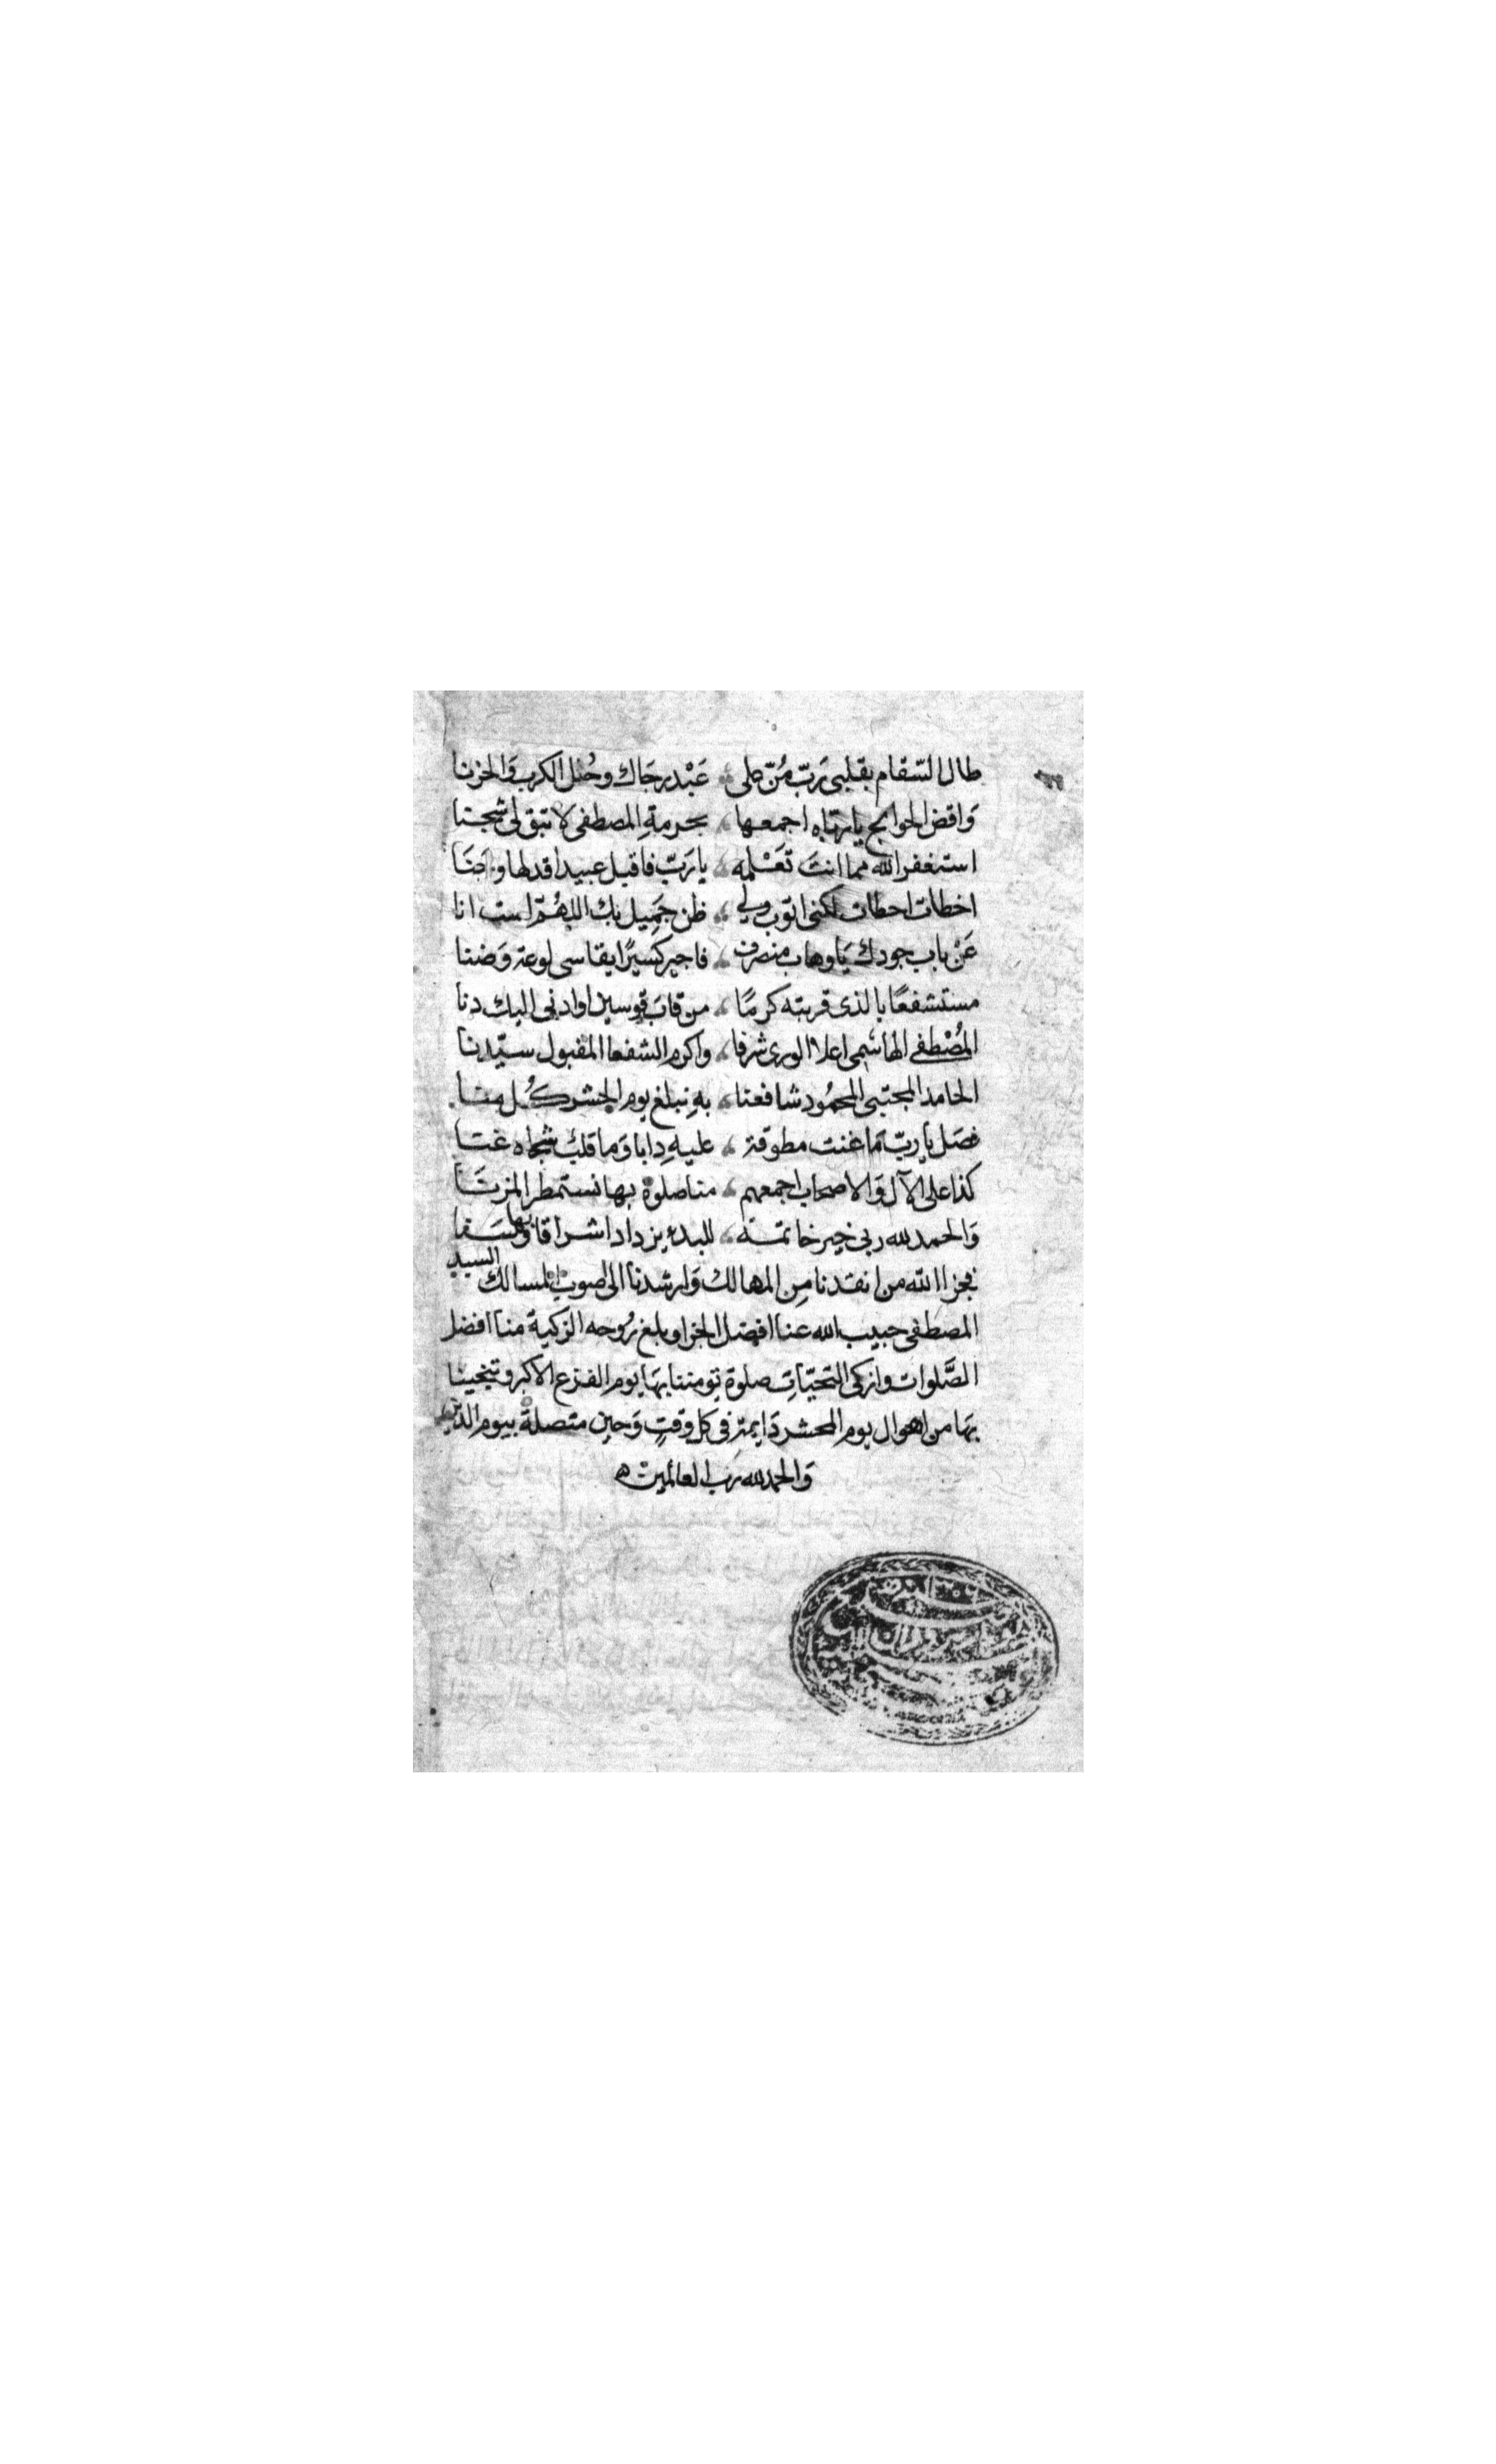 طال السّقام بقلبى رَبّ مُنّ على عَبْد رجَاك وحُل الكرب وَالحزنا
وَاقض الحوايج يا ربّاه اجمعها بحرمةِ المصطفى لا تبق لى شجنا
استغفر الله مما انتَ تَعْلمه يا رَبّ فاقبل عبيدا قد لها وجنَا
اخطات اخطات لكنى اتوب ولي ظن جَمِيل بك اللهُمّ لست انا
عَنْ باب جودك يَا وهاب منصرف فاجبر كسيرًا يقاسى لوعة وَضنا
مستشفعًا بالذى قربته كرمًا من قابَ قوسين او ادنى اليك دنا
المُصْطفى الهاشمى اعلا الورى شرفا واكرم الشفعا المقبول سيّدنا
الحامد المجتبى المحمُود شافعنا بهِ نبلغ يوم الحشر كُل منا
فصَل يا ربّ مَا غنت مطوقة عليهِ دابا وَما قلب شجاه غنا
كذا على الآل وَالاصحاب اجمعهم منا صلوة بها نستمطر المزنَا
وَالحمد لله ربى خير خاتمة للبدء يزداد اشراقا بها وسَنا
فجزا الله من انقدنا مِن المهالك وَارشدنا الى صوب المسالك السيد
المصطفى حبيب الله عنا افضل الجزا وبلغ رُوحه الزكية منا افضل
الصَّلوات وازكى التحيّاتِ صلوة تومننا بهَا يوم الفزع الاكبر وتنجينا
بهَا من اهوال يوم المحشر دَايمة فى كل وقتٍ وَحين متصلة بيوم الدّين
وَالحمد لله رَب العالمين